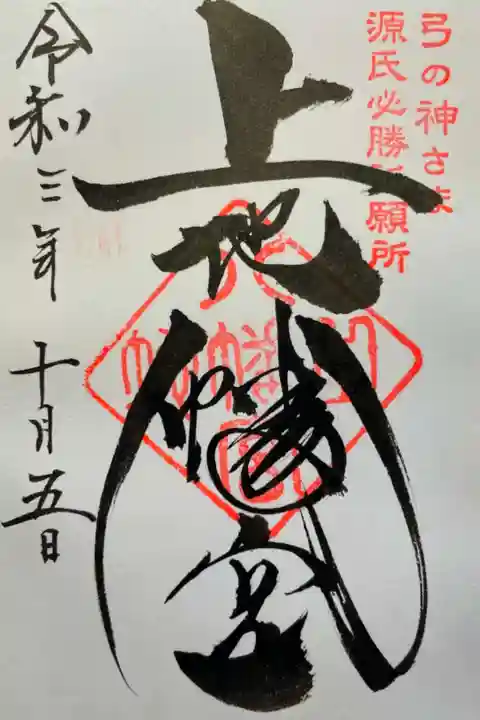 弓の神さま
源氏必勝祈願所
上地八幡宮
令和三年十月五日